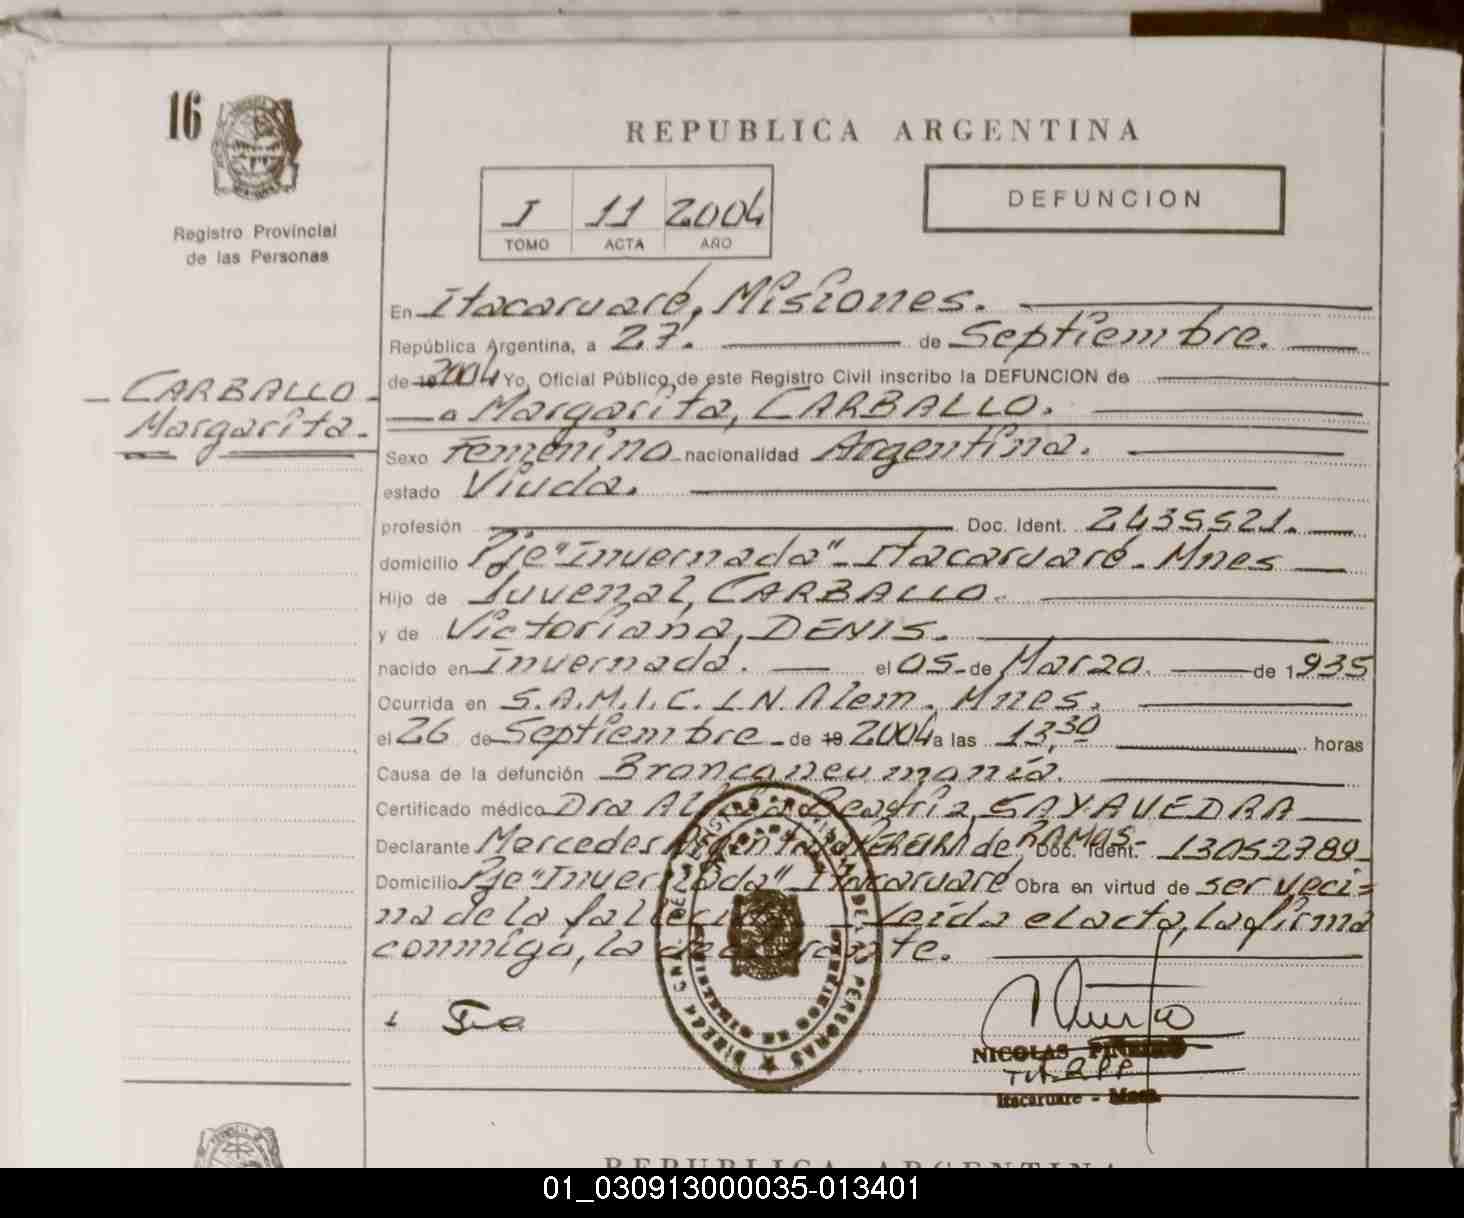 16
Registro Provincial
de las Personas
CARBALLO
Margarita.
REPUBLICA ARGENTINA
I 11 2004
TOMO ACTA AÑO
DEFUNCION
En Itacaruaré, Misiones.
República Argentina, a 27. de Septiembre.
de 19 2004 Yo, Oficial Público de este Registro Civil inscribo la DEFUNCION de
a Margarita, CARBALLO.
Sexo Femenino nacionalidad Argentina.
estado Viuda.
profesión Doc. Ident. 2435521.
domicilio Pje "Invernada" - Itacaruaré - Mnes
Hijo de Juvenal, CARBALLO.
y de Victoriana, DENIS.
nacido en Invernada. el 05 - de Marzo. de 1935
Ocurrida en S.A.M.I.C. L.N. Alem. Mnes.
el 26 de Septiembre - de 19 2004 a las 13,30 horas
Causa de la defunción Bronconeumonía.
Certificado médico Dra Beatriz, SAYAVEDRA
Declarante Mercedes Argentina PEREIRA de RAMOS - Doc. Ident. 13052789
Domicilio Pje "Invernada" Itacaruaré Obra en virtud de ser veci=
na de la fallecida. - Leída el acta, la firma
conmigo, la declarante.
NICOLAS
Itacaruare -
DIRECC. GRAL. DEL REGISTRO PROVINCIAL DE LAS PERSONAS
REPUBLICA ARGENTINA
01_030913000035-013401